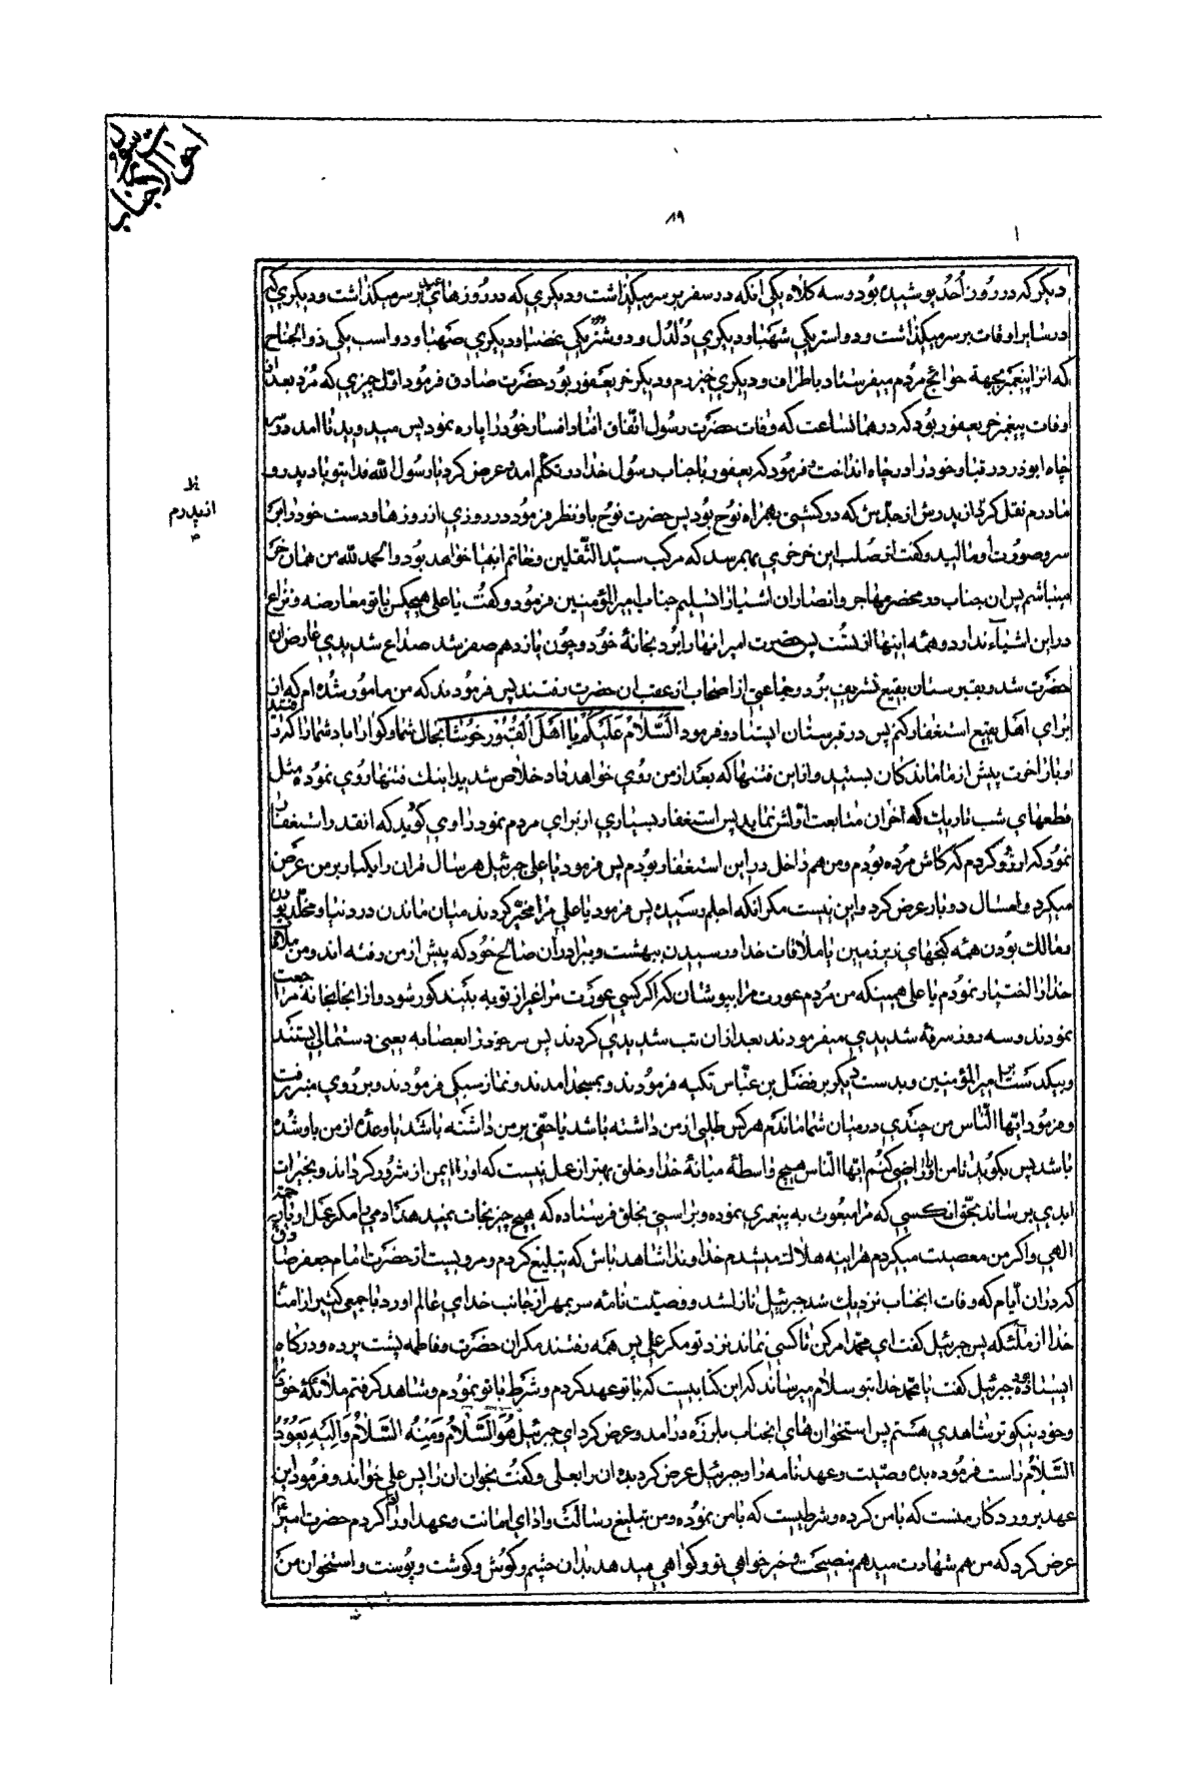 احوالات جناب رسول
۸۹
دیگر که در روز اُحُد پوشیده بود و سه کلاه یکی انکه در سفر بر سر میگذاشت و دیگری که در روزهای عید بر سر میگذاشت و دیگری که
در سایر اوقات بر سر میگذاشت و دو استر یکی شَهبَا و دیگری دُلدُل و دو شتر یکی غضبا و دیگری صَهبَا و دو اسب یکی ذوالجناح
که انرا پیغمبر بجهة حوائج مردم میفرستاد باطراف و دیگری خیزدم و دیگر خر یعفور بود حضرت صادق فرمود اول چیزی که مُرد بعد از
وفات پیغمبر خر یعفور بود که در همانساعت که وفات حضرت رسول اتفاق افتاد افسار خود را پاره نمود پس میدوید تا امد در سر
چاه ابوذر در قبا و خود را در چاه انداخت و فرمود که یعفور با جناب رسول خدا در تکلم امده عرض کرد یا رسول الله فدا بتو باد پدر و
مادرم نقل کرد از پدرش از جدش که در کشتی بهمراه نوح بود پس حضرت نوح باو نظر فرمود در روزی از روزها و دست خود را بر
سر و صورت او مالید و گفت از صلب این خر خری بهم رسد که مرکب سید الثقلین و خاتم انبیا خواهد بود و الحمد لله من همان خر
میباشم پس ان جناب در محضر مهاجر و انصار ان اشیا را تسلیم جناب امیر المؤمنین فرمود و گفت یا علی هیچکس با تو معارضه و نزاع
در این اشیاء ندارد و همه اینها از تست پس حضرت امیر انها را برد بخانهٔ خود و چون یازدهم صفر شد صداع شدیدی عارض ان
حضرت شد و بقبرستان بقیع تشریف برد و جماعتی از اصحاب از عقب ان حضرت رفتند پس فرمودند که من مامور شده ام که از
برای اهل بقیع استغفار کنم پس در قبرستان ایستاد و فرمود السَّلامُ عَلَیکُم یا اَهلَ القُبُور خوشا بحال شما و گوارا باد شما را که رفتند
و باز اخرت پیش از ما ماندگان بستید و از این فتنها که بعد از من روی خواهد داد خلاص شدید اینك فتنها روی نموده مثل
قطعهای شب تاریك که آخران متابعت اولش نماید پس استغفار بسیاری از برای مردم نمود راوی گوید که انقدر استغفار
نمود که ارزو کردم که کاش مرده بودم و من هم داخل در این استغفار بودم پس فرمود یا علی جبرئیل هر سال قران را یکبار بر من عرض
میکرد و امسال دو بار عرض کرد و این نیست مگر انکه اجلم رسیده پس فرمود یا علی مرا مخیر کردند میان ماندن در دنیا و مخلد بودن
و مالك بودن همه گنجهای زیر زمین یا ملاقات خدا و رسیدن ببهشت و برادران صالح خود که پیش از من رفته اند و من ملاقات
خدا را اختیار نمودم یا علی همینکه من مُردم عورت مرا بپوشان که اگر کسی عورت مرا غیر از تو به بیند کور شود و از انجا بخانه مراجعت
نمودند و سه روز سرفهٔ شدیدی میفرمودند بعد از ان تب شدیدی کردند پس سر خود را بعصابه یعنی دستمالی بستند
و بیکدست بر امیر المؤمنین و بدست دیگر بر فضل بن عباس تکیه فرمودند و بمسجد امدند و نماز سبکی فرمودند و بر روی منبر رفت
و فرمود ایها الناس من چندی در میان شما ماندم هر کس طلبی از من داشته باشد یا حقی بر من داشته باشد یا وعده از من باو شده
باشد پس بگوید تا من او را راضی کنم ایها الناس هیچ واسطهٔ میانهٔ خدا و خلق بهتر از عمل نیست که او را ایمن از شرور گرداند و بخیرات
ابدی برساند بحق انکسی که مرا مبعوث به پیغمبری نموده و براستی بخلق فرستاده که هیچ چیز نجات نمیدهد ادمی را مگر عمل او با رحمت
الهی و اگر من معصیت میکردم هر اینه هلاك میشدم خداوندا شاهد باش که تبلیغ کردم و مرویست از حضرت امام جعفر صادق
که در ان ایام که وفات انجناب نزدیك شد جبرئیل نازل شد و وصیّت نامه سر بمهر از جانب خدای عالم اورد با جمعی کثیر از امنا
خدا از ملئکه پس جبرئیل گفت ای محمد امر کن تا کسی نماند نزد تو مگر علی پس همه رفتند مگر ان حضرت و فاطمه پشت پرده و درگاه
ایستاده بود جبرئیل گفت یا محمد خدا بتو سلام میرساند که این کتابیست که با تو عهد کردم و شرط با تو نمودم و شاهد گرفتم ملائکهٔ خود را
و خود نیکوتر شاهدی هستم پس استخوان های انجناب بلرزه در امد و عرض کرد ای جبرئیل هُوَ السَّلامُ وَ مِنهُ السَّلامُ وَ اِلَیهِ یَعُودُ
السَّلامُ راست فرموده بده وصیّت و عهدنامه را و جبرئیل عرض کرد بده ان را بعلی و گفت بخوان ان را پس علی خواند و فرمود این
عهد پروردگار منست که با من کرده و شرطیست که با من نموده و من تبلیغ رسالت و ادای امانت و عهد او را کردم حضرت امیر
عرض کرد که من هم شهادت میدهم بنصیحت و خیر خواهی تو و گواهی میدهد بدان چشم و گوش و گوشت و پوست و استخوان من
از پدرم